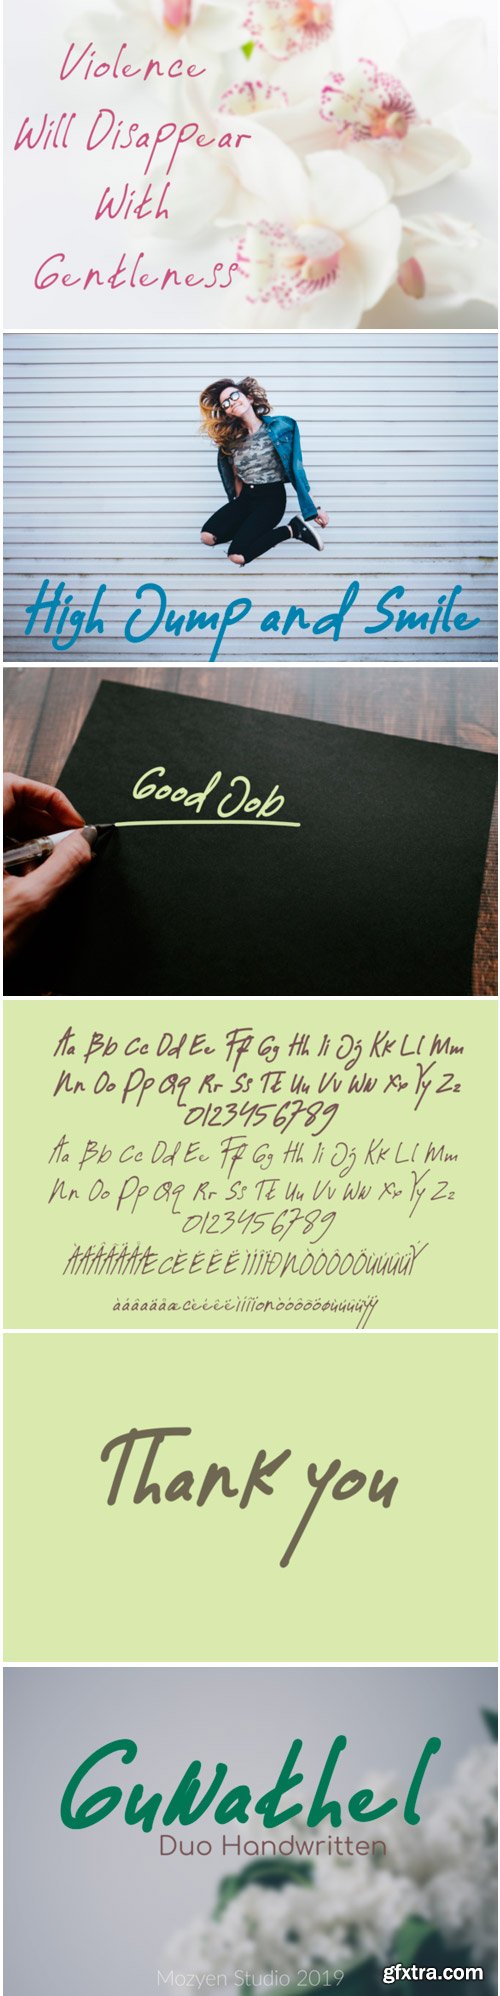 Violence
Will Disappear
With
Gentleness
High Jump and Smile
Good Job
Aa Bb Cc Dd Ee Ff Gg Hh Ii Jj Kk Ll Mm
Nn Oo Pp Qq Rr Ss Tt Uu Vv Ww Xx Yy Zz
0123456789
Aa Bb Cc Dd Ee Ff Gg Hh Ii Jj Kk Ll Mm
Nn Oo Pp Qq Rr Ss Tt Uu Vv Ww Xx Yy Zz
0123456789
Thank you
Guwathel
Duo Handwritten
Mozyen Studio 2019
gfxtra.com